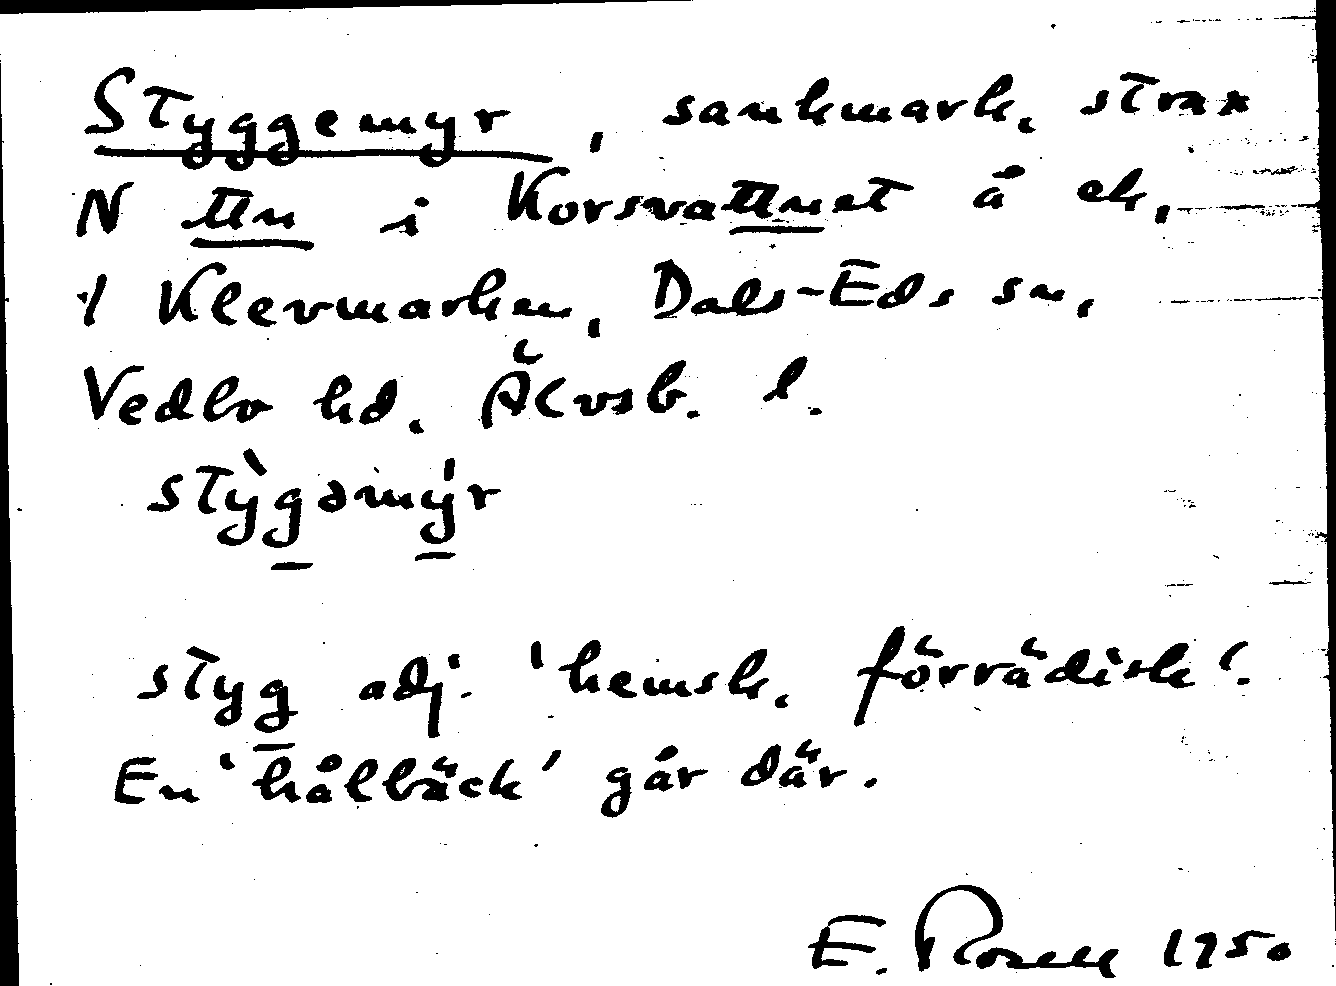 Styggemyr, sankmark, strax
N ttn i Korsvattnet å ek,
1 Klevmarken, Dals-Eds sn,
Vedbo hd, Älvsb. l.
stỳgəmýr
styg adj. 'hemsk, förrädisk'.
En 'hålbäck' går där.
E. Rosell 1950